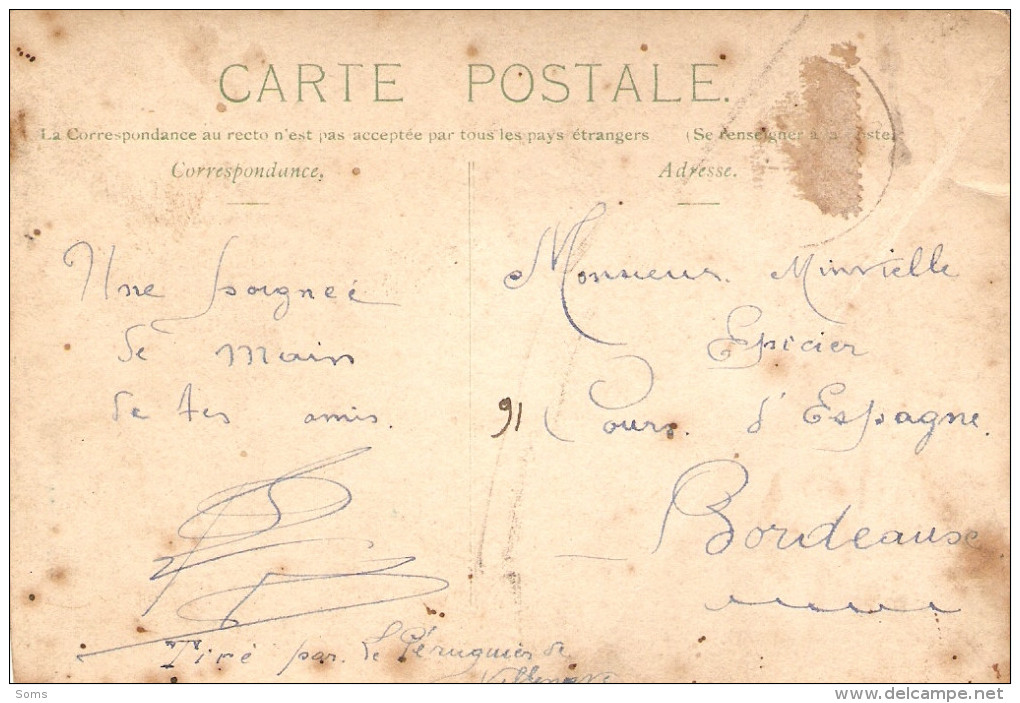 CARTE POSTALE.
La Correspondance au recto n'est pas acceptée par tous les pays étrangers (Se renseigner à la Poste)
Correspondance.
Adresse.
Une poignée
de main
de tes amis.
Monsieur Minvielle
Epicier
91 Cours d'Espagne.
Bordeause
Tiré par Le Péruquier de
Soms
www.delcampe.net